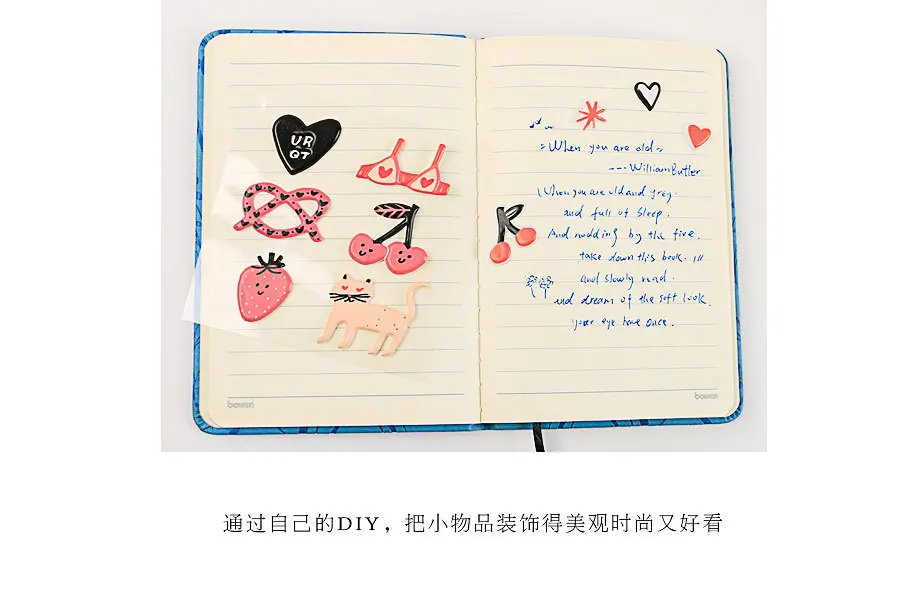 UR
QT
bowen
"When you are old"
---WilliamButler
When you are old and grey.
and full of sleep.
And nodding by the fire.
take down this book.
and slowly read.
and dream of the soft look.
your eye have once.
bowen
通过自己的DIY，把小物品装饰得美观时尚又好看